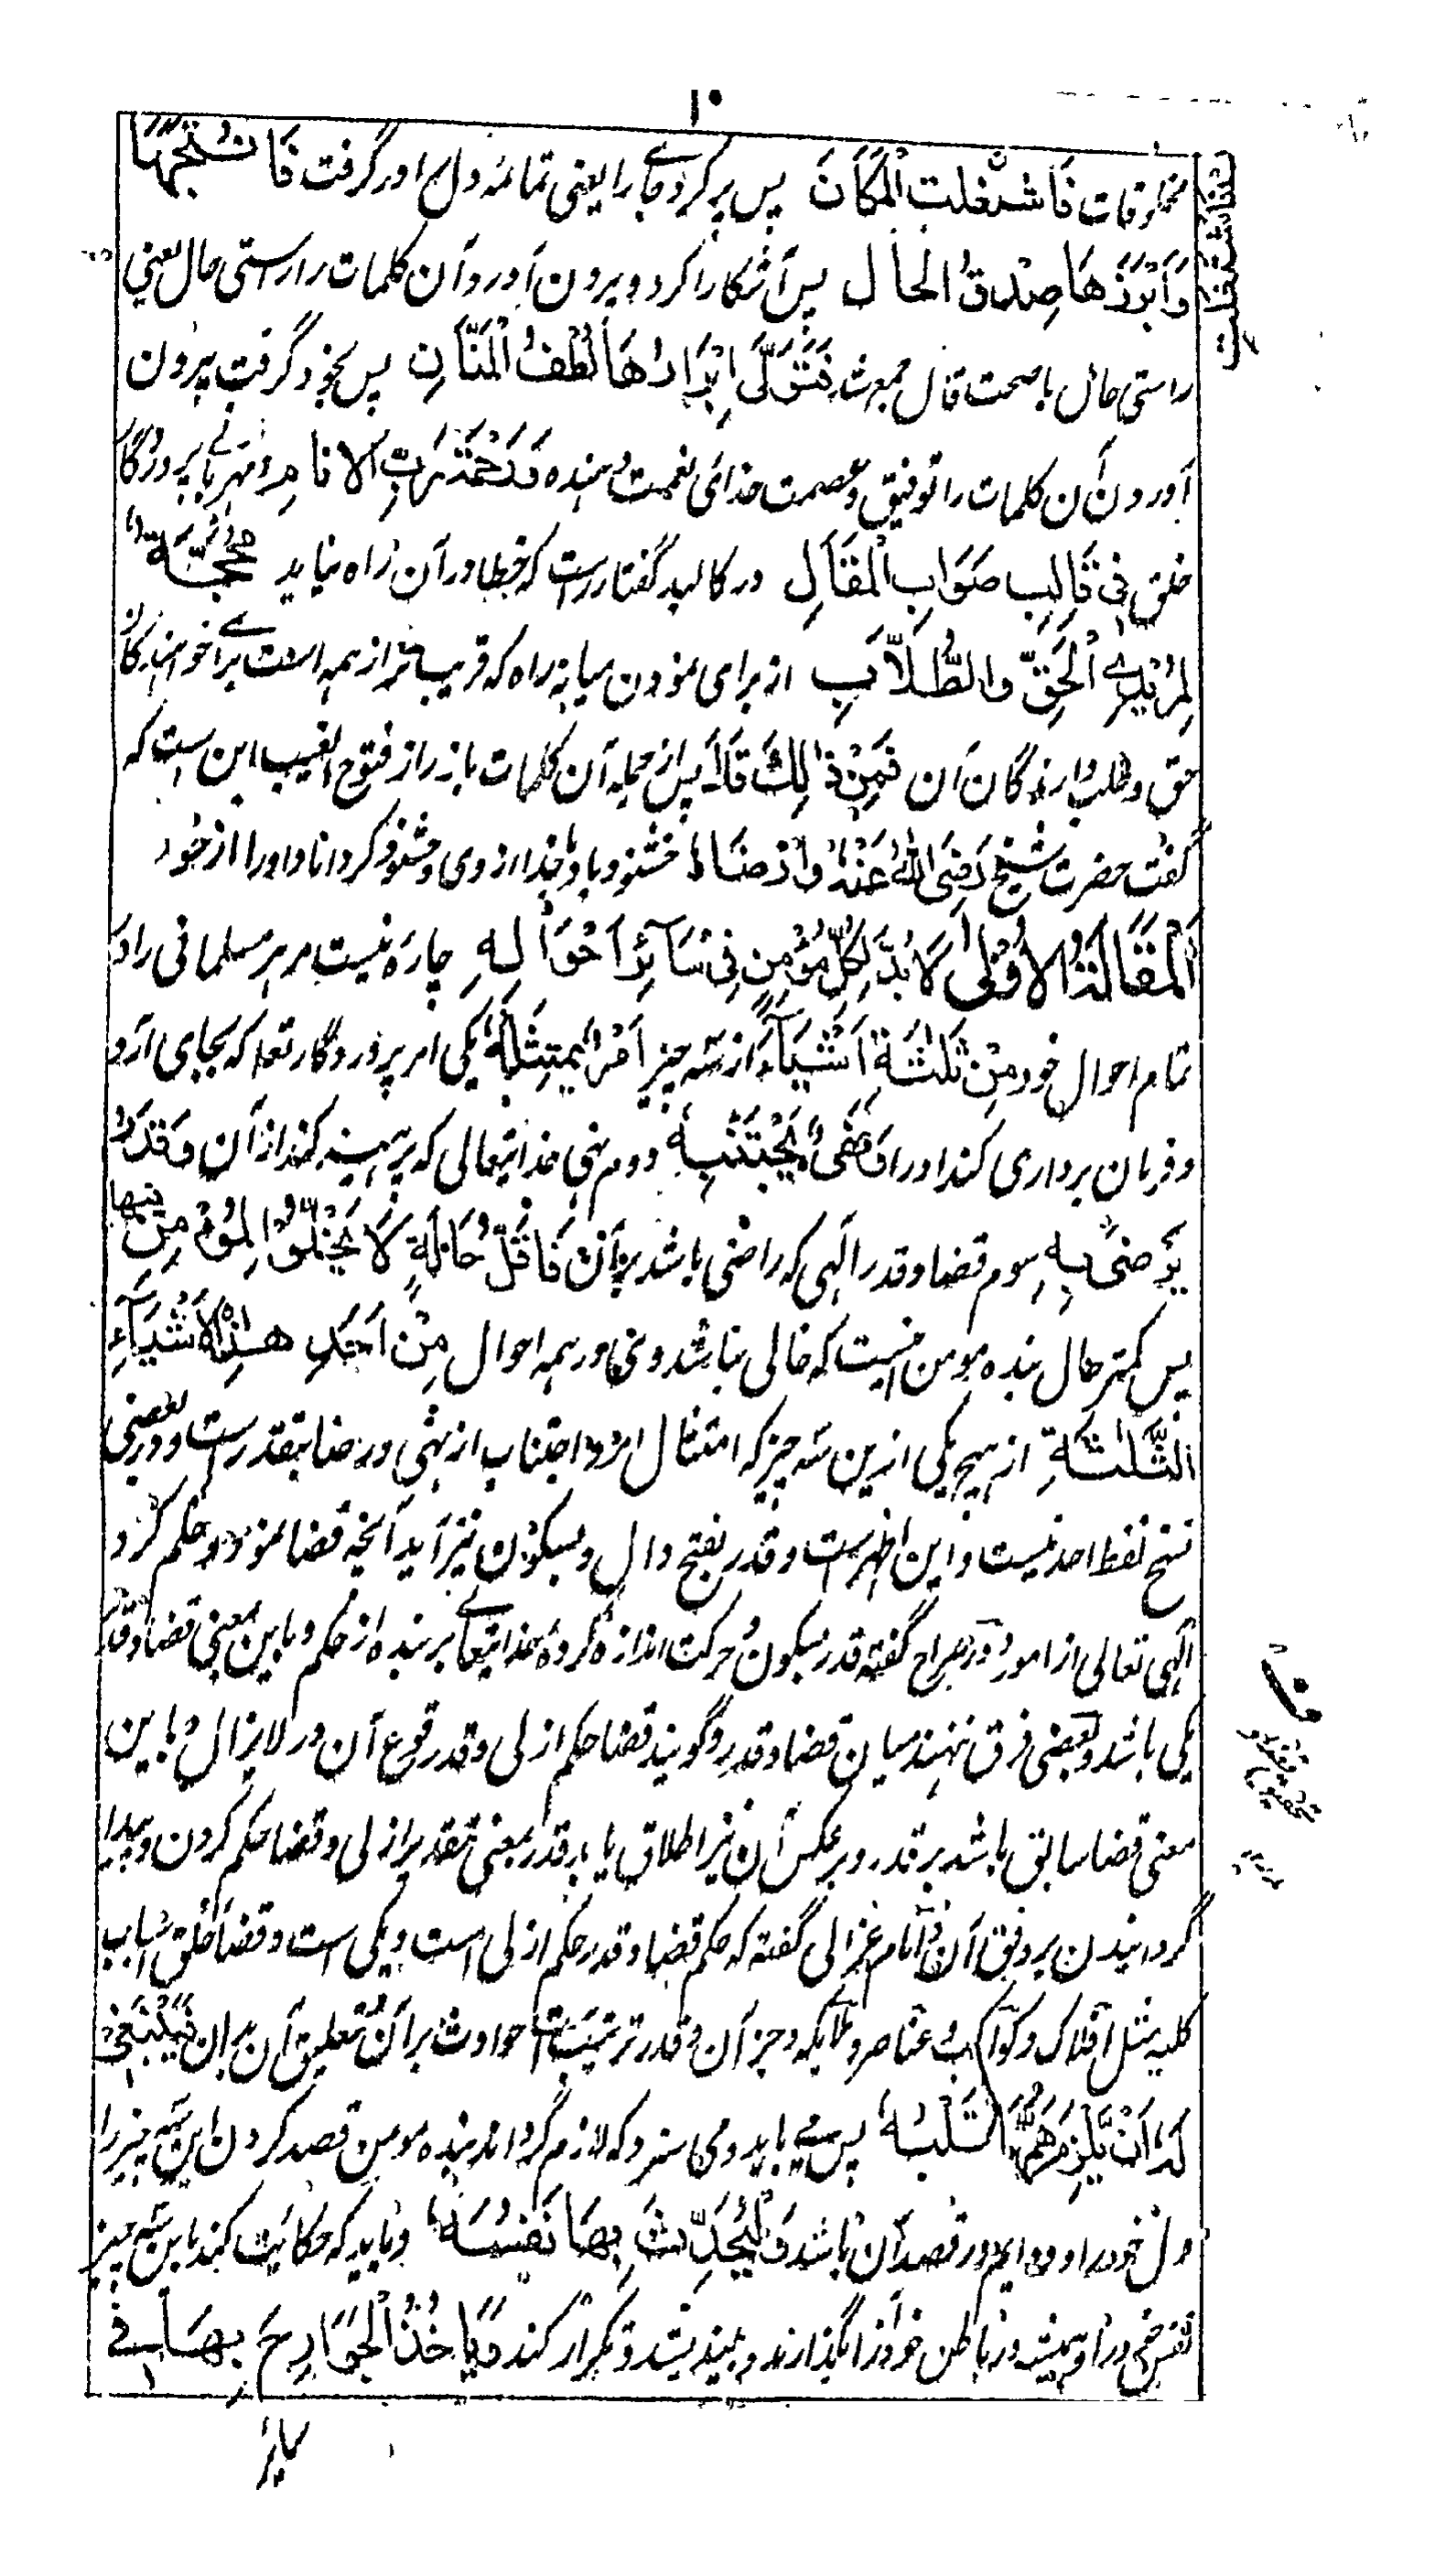 ۱۰
مخلوقات فَاشْتَغَلَتِ الْمَكَانَ پس پر کردے جاے را یعنی تمامئہ دل اورا گرفت فَاَنْتَجَهَا
وَاَبْرَزَهَا صِدْقُ الْحَالِ پس آشکارا کرد و بیرون آورد آن کلمات را راستی حال یعنی
راستی حال با صحت قال جمع شد فَتَوَلّٰى اِبْرَازَهَا لُطْفُ الْمَنَّانِ پس بخود گرفت بیرون
آوردن آن کلمات را توفیق و عصمت خدائی نعمت دہندہ وَرَحْمَةُ رَبِّ الْاَنَامِ و مہربانے پروردگار
خلق فِيْ قَالِبِ صَوَابِ الْمَقَالِ در کالبد گفتار راست کہ خطا در آن راہ نیابد مَحَجَّةً
لِمُرِيْدِے الْحَقِّ وَالطُّلَّابِ از برای نمودن میانہ راہ کہ قریب تر از ہمہ است براے خواہندگان
حق و طلب دارندگان آن فَمِنْ ذٰلِكَ قَالَ پس از جملہ آن کلمات بارزہ از فتوح الغیب این است کہ
گفت حضرت شیخ رَضِيَ اللّٰهُ عَنْهُ وَاَرْضَاهُ خشنود باد خدا از وی و خشنود گرداناد اورا از خود
اَلْمَقَالَةُ الْاُوْلٰى لَا بُدَّ لِكُلِّ مُؤْمِنٍ فِيْ سَآئِرِ اَحْوَالِهٖ چارہ نیست مر ہر مسلمانی را در
تمام احوال خود مِنْ ثَلٰثَةِ اَشْيَآءَ از سہ چیز اَمْرٌ يَمْتَثِلُهٗ یکی امر پروردگار تعالٰی کہ بجای آرد
و فرمان برداری کند اورا وَنَهْيٌ يَجْتَنِبُهٗ دوم نہی خدایتعالی کہ پرہیز کند از آن وَقَدَرٌ
يَرْضٰى بِهٖ سوم قضا و قدر الٰہی کہ راضی باشد بر آن فَاَقَلُّ حَالَةٍ لَا يَخْلُو الْمُؤْمِنُ فِيْهَا
پس کمتر حال بندہ مومن اینست کہ خالی نباشد وی در ہمہ احوال مِنْ اَحَدِ هٰذِهِ الْاَشْيَآءِ
الثَّلٰثَةِ از ہیچ یکی ازین سہ چیز کہ امتثال امر و اجتناب از نہی و رضا بتقدیر است و در بعضی
نسخ لفظ احد نیست و این اظہر است و قدر بفتح دال و بسکون نیز آید آنچہ قضا نمود و حکم کرد
الٰہی تعالی از امور و در صراح گفتہ قدر بسکون و حرکت اندازہ کردہ خدایتعالے بر بندہ از حکم و باین معنی قضا و قدر
یکی باشد و بعضی فرق نہند میان قضا و قدر و گویند قضا حکم ازلی و قدر وقوع آن در لایزال و باین
معنی قضا سابق باشد بر قدر و بر عکس آن نیز اطلاق یابد قدر بمعنی تقدیر ازلی و قضا حکم کردن و پیدا
گردانیدن بر وفق آن و امام غزالی گفتہ کہ حکم قضا و قدر حکم ازلی است و یکی است و قضا خلق اسباب
کلیہ مثل افلاک و کواکب و عناصر و ملائکہ و جز آن و قدر ترتیب حوادث بر آن و تعلیق آن بر ان فَيَنْبَغِيْ
لَهٗ اَنْ يَّلْزِمَ هَمَّهَا قَلْبَهٗ پس مے باید و می سزد کہ لازم گرداند بندہ مومن قصد کردن این سہ چیز را
دل خود را و دایم در قصد آن باشد وَلْيُحَدِّثْ بِهَا نَفْسَهٗ و باید کہ حکایت کند باین سہ چیز
نفس خود را و ہمیشہ در باطن خود را بگذارند و بیندیشد و تکرار کند وَيَاْخُذَ الْجَوَارِحَ بِهَا فِيْ
سایر
ف
تحقیق قضا و قدر